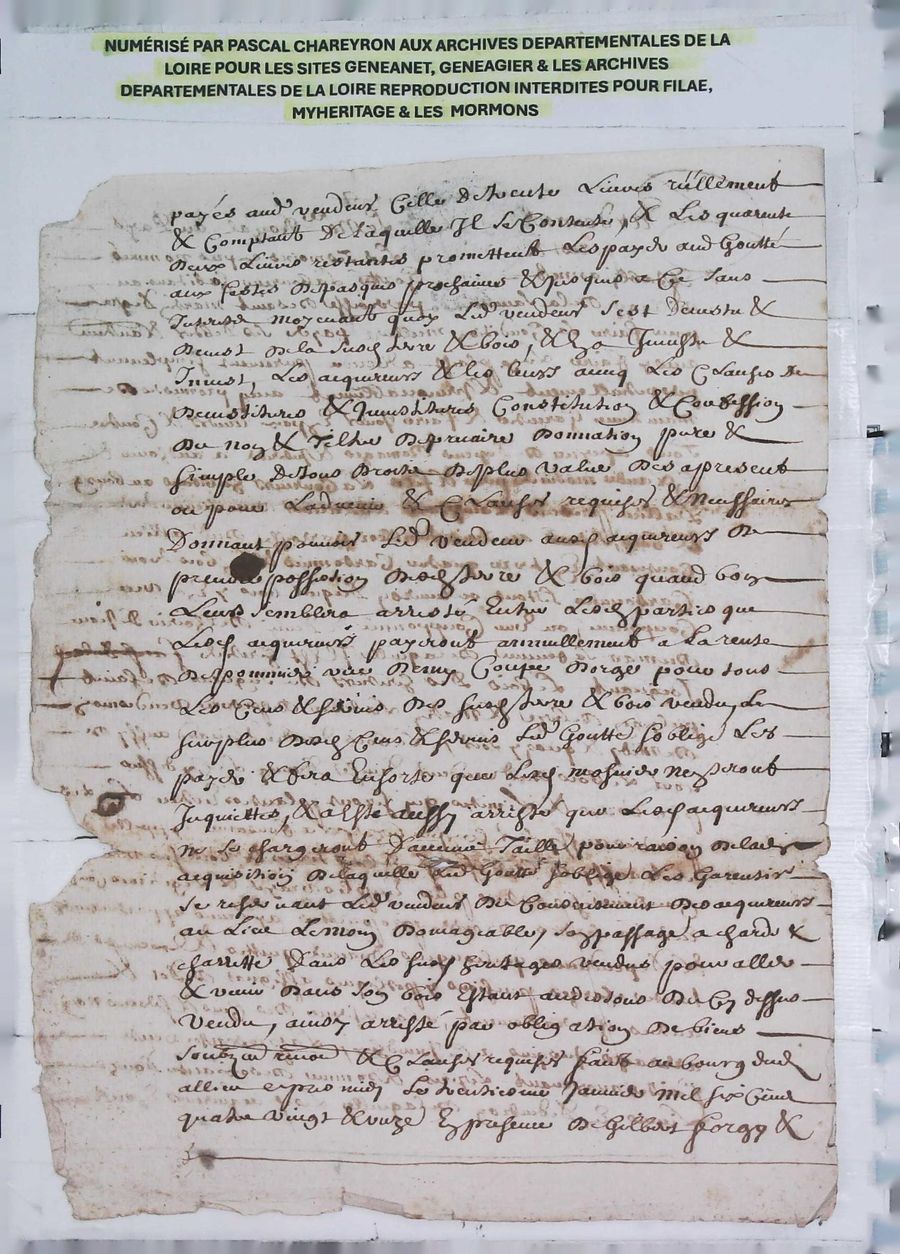 NUMÉRISÉ PAR PASCAL CHAREYRON AUX ARCHIVES DEPARTEMENTALES DE LA
LOIRE POUR LES SITES GENEANET, GENEAGIER & LES ARCHIVES
DEPARTEMENTALES DE LA LOIRE REPRODUCTION INTERDITES POUR FILAE,
MYHERITAGE & LES MORMONS
payés aud vendeur Celle de trente Livres réellement
& Comptant de laquelle Il se Contente, & Les quarente
deux Livres restantes promettent Les payer aud Goutté
aux festes de pasques prochaine & jusques a Ce sans
Interests moyenant quoy Led vendeur sest demestu &
devest de la susd terre & bois, & En a Investu &
Invest, Les acquireurs & les leurs avecq Les Clauses de
devestitures & Investitures Constitution & Confession
du nom & tiltre de precaire donnation pure &
simple de tous droits de plus value des apresent
ou pour Ladvenir & Clauses requises & necessaires
Donnant pouvoir Led vendeur ausd acquireurs de
prendre possession desd terre & bois quand bon
Leur semblera arresté Entre Lesd parties que
Lesd acquireurs payeront annuellement a La rente
de pommiers demy Coupe dorge pour tous
Les Cens & servis des susd terre & bois vendu, Le
surplus desd Cens & servis Led Goutté soblige Les
payer & fera Ensorte que Lesd ne seront
Inquiettes, & a Esté aussy arresté que Lesd acquireurs
ne se chargeront daucune Taille pour raison de lad
acquisition de laquelle Led Goutté soblige Les Garentir
se reservant Led vendeur du Consentement des acquireurs
au Lieu Le moins domageable, son passage a chard &
charrette dans Les susd heritages vendus pour aller
& venir dans son bois Estant audessous du Cy dessus
vendu, ainsy arresté par obligation de biens
& Clauses requises fait au bourg dud
allieu apres midy Le trentiesme Janvier mil six Cens
quatre vingt & unze En presence de Gilbert forgy &